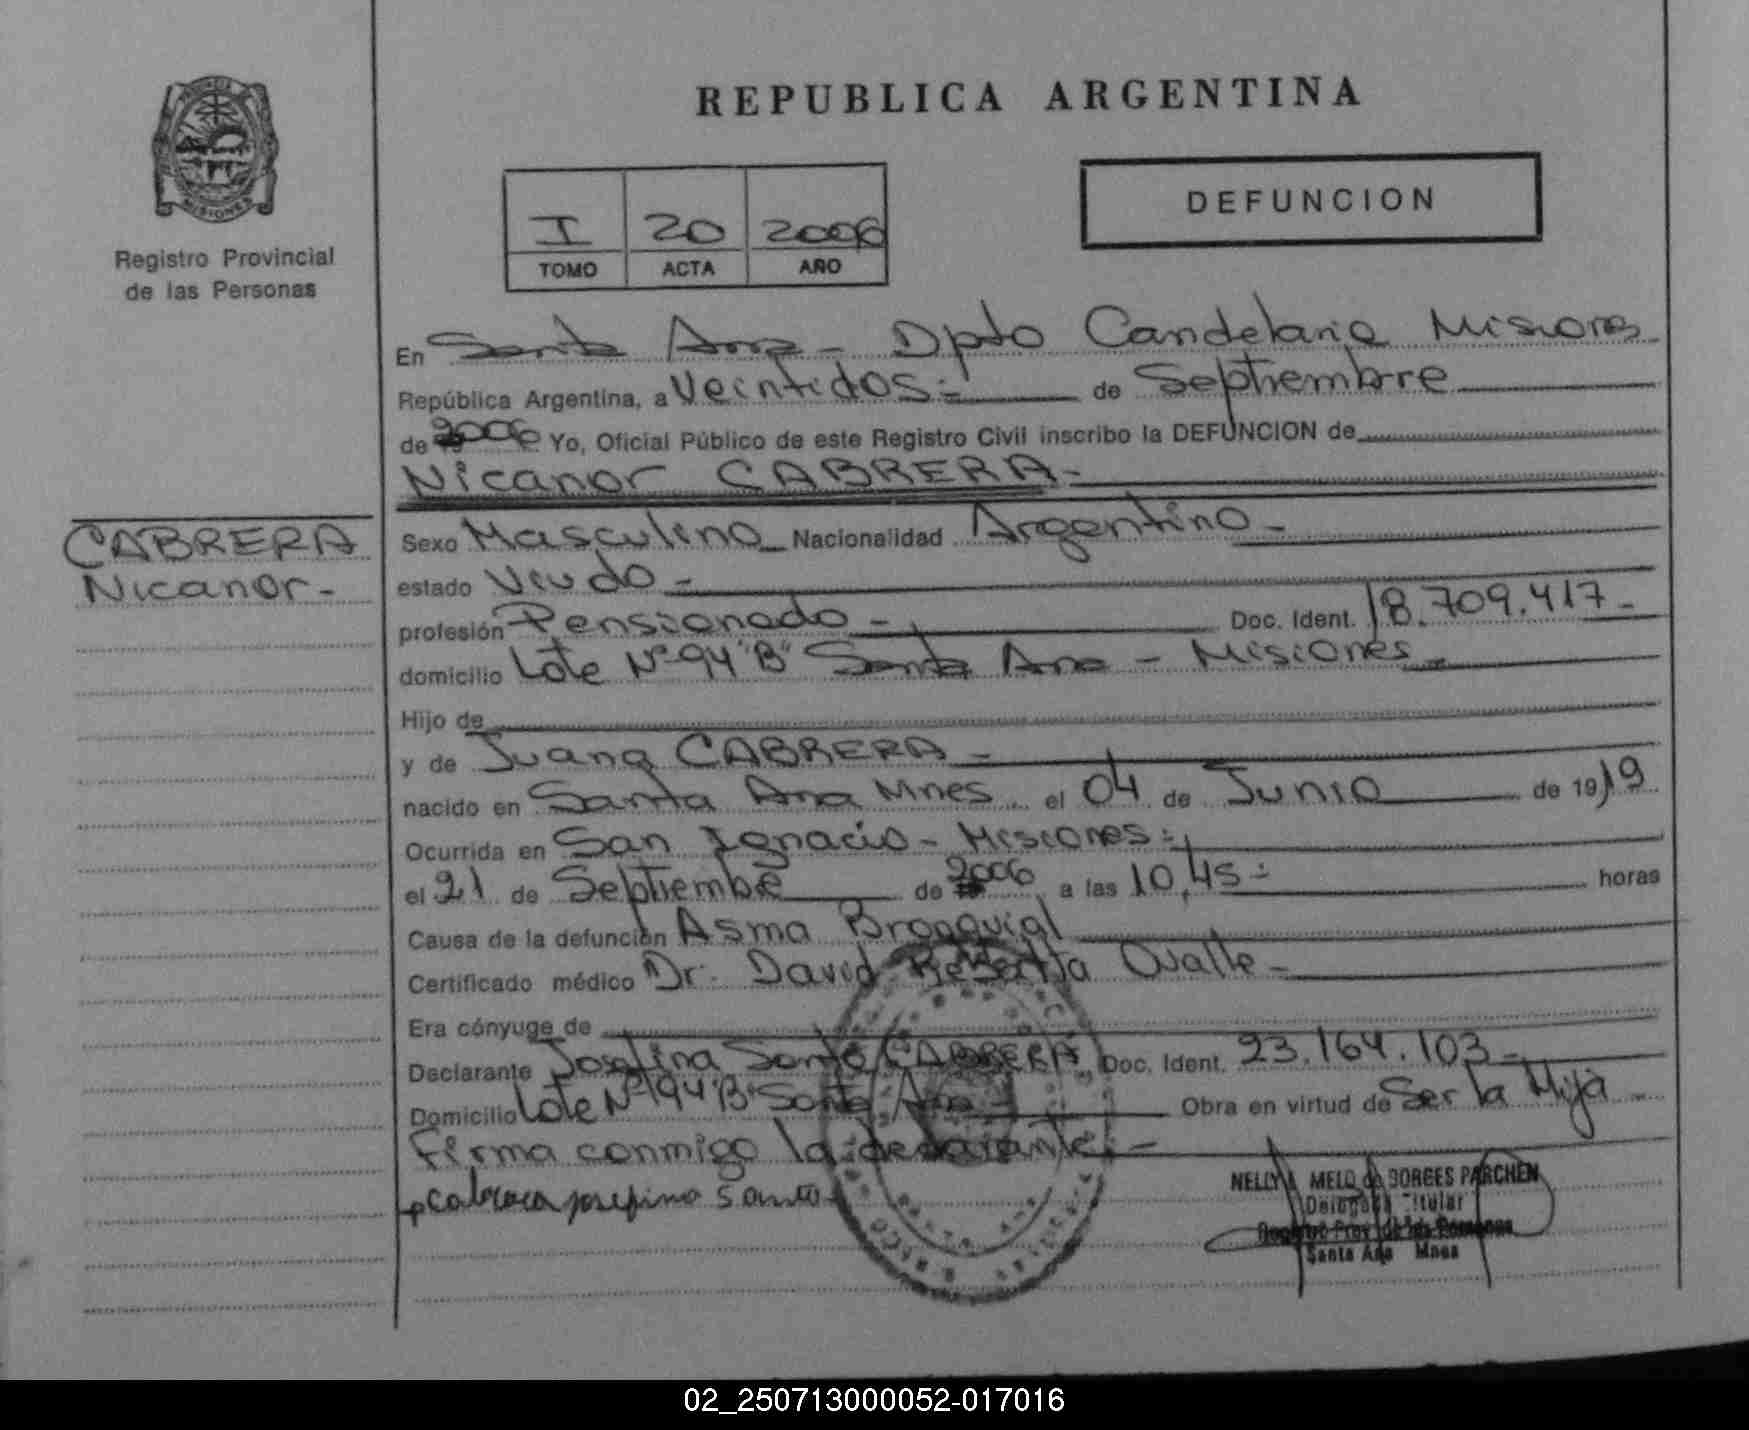 REPUBLICA ARGENTINA
MISIONES
Registro Provincial
de las Personas
I 20 2006
TOMO ACTA AÑO
DEFUNCION
En Santa Ana - Dpto Candelaria Misiones
República Argentina, a Veintidos.= de Septiembre
de 2006 Yo, Oficial Público de este Registro Civil inscribo la DEFUNCION de
Nicanor CABRERA-
CABRERA
Nicanor-
Sexo Masculino Nacionalidad Argentino-
estado Viudo-
profesión Pensionado- Doc. Ident. 18.709.417-
domicilio Lote Nº 94 "B" Santa Ana - Misiones
Hijo de
y de Juana CABRERA-
nacido en Santa Ana Mnes el 04 de Junio de 1919
Ocurrida en San Ignacio - Misiones
el 21 de Septiembre de 2006 a las 10,45 horas
Causa de la defunción Asma Bronquial
Certificado médico Dr. David Ovalle-
Era cónyuge de
Declarante Josefina Santo CABRERA Doc. Ident. 23.164.103-
Domicilio Lote Nº 94 "B" Santa Ana Obra en virtud de Ser la Hija
Firma conmigo la declarante.-
Cabrera josefina Santo
NELLY MELO de BORGES PARCHEN
Delegada Titular
Registro Prov. de las Personas
Santa Ana Mnes
02_250713000052-017016